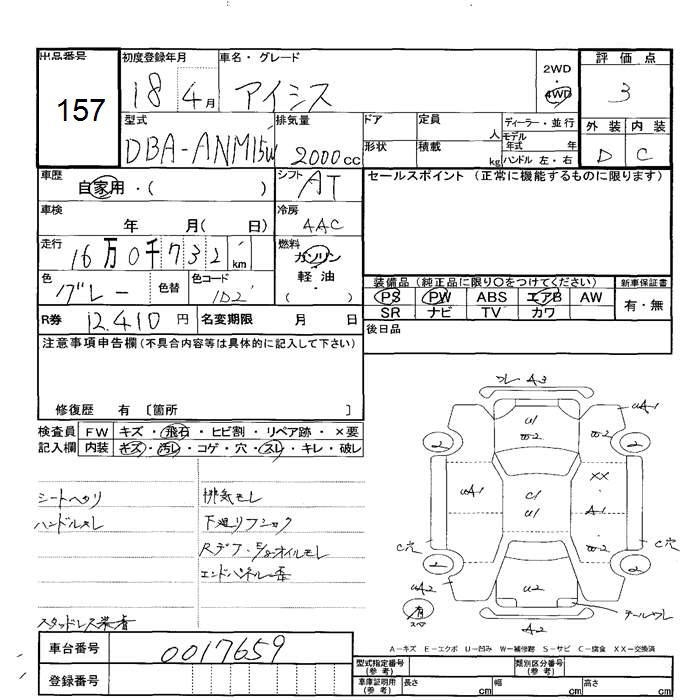 出品番号
157
初度登録年月
18 4月
車名・グレード
アイシス
2WD
・
4WD
評価点
3
外装 内装
D C
型式
DBA-ANM15W
排気量
2000cc
ドア
定員
人
ディーラー・並行
形状
積載
kg
モデル
年式 年
ハンドル 左・右
車歴
自家用・( )
シフト
AT
セールスポイント (正常に機能するものに限ります)
車検
年 月( 日)
冷房
AAC
走行
16万0千732km
燃料
ガソリン
軽油
( )
色
グレー
色替
色コード
1D2
装備品 (純正品に限り○をつけてください)
PS PW ABS エアB AW
SR ナビ TV カワ
新車保証書
有・無
R券
12.410 円
名変期限 月 日
後日品
注意事項申告欄 (不具合内容等は具体的に記入して下さい)
修復歴 有 〔箇所 〕
検査員
記入欄
FW キズ・飛石・ヒビ割・リペア跡・×要
内装 キズ・汚レ・コゲ・穴・スレ・キレ・破レ
シートヘタリ
ハンドルスレ
スタッドレス装着
排気モレ
下廻リフショク
Rデフ・E/gオイルモレ
エンドパネル一歪
ワレ A3
uA1
U1
W2
W2
2
2
uA1
C1
U1
XX
A1
W2
C穴
C穴
2
2
uA2
U2
有
スペ
テールワレ
A2
A-キズ E-エクボ U-凹み W-補修跡 S-サビ C-腐食 XX-交換済
車台番号
0017659
登録番号
型式指定番号
(参考)
類別区分番号
(参考)
車庫証明用
(参考)
長さ cm
幅 cm
高さ cm